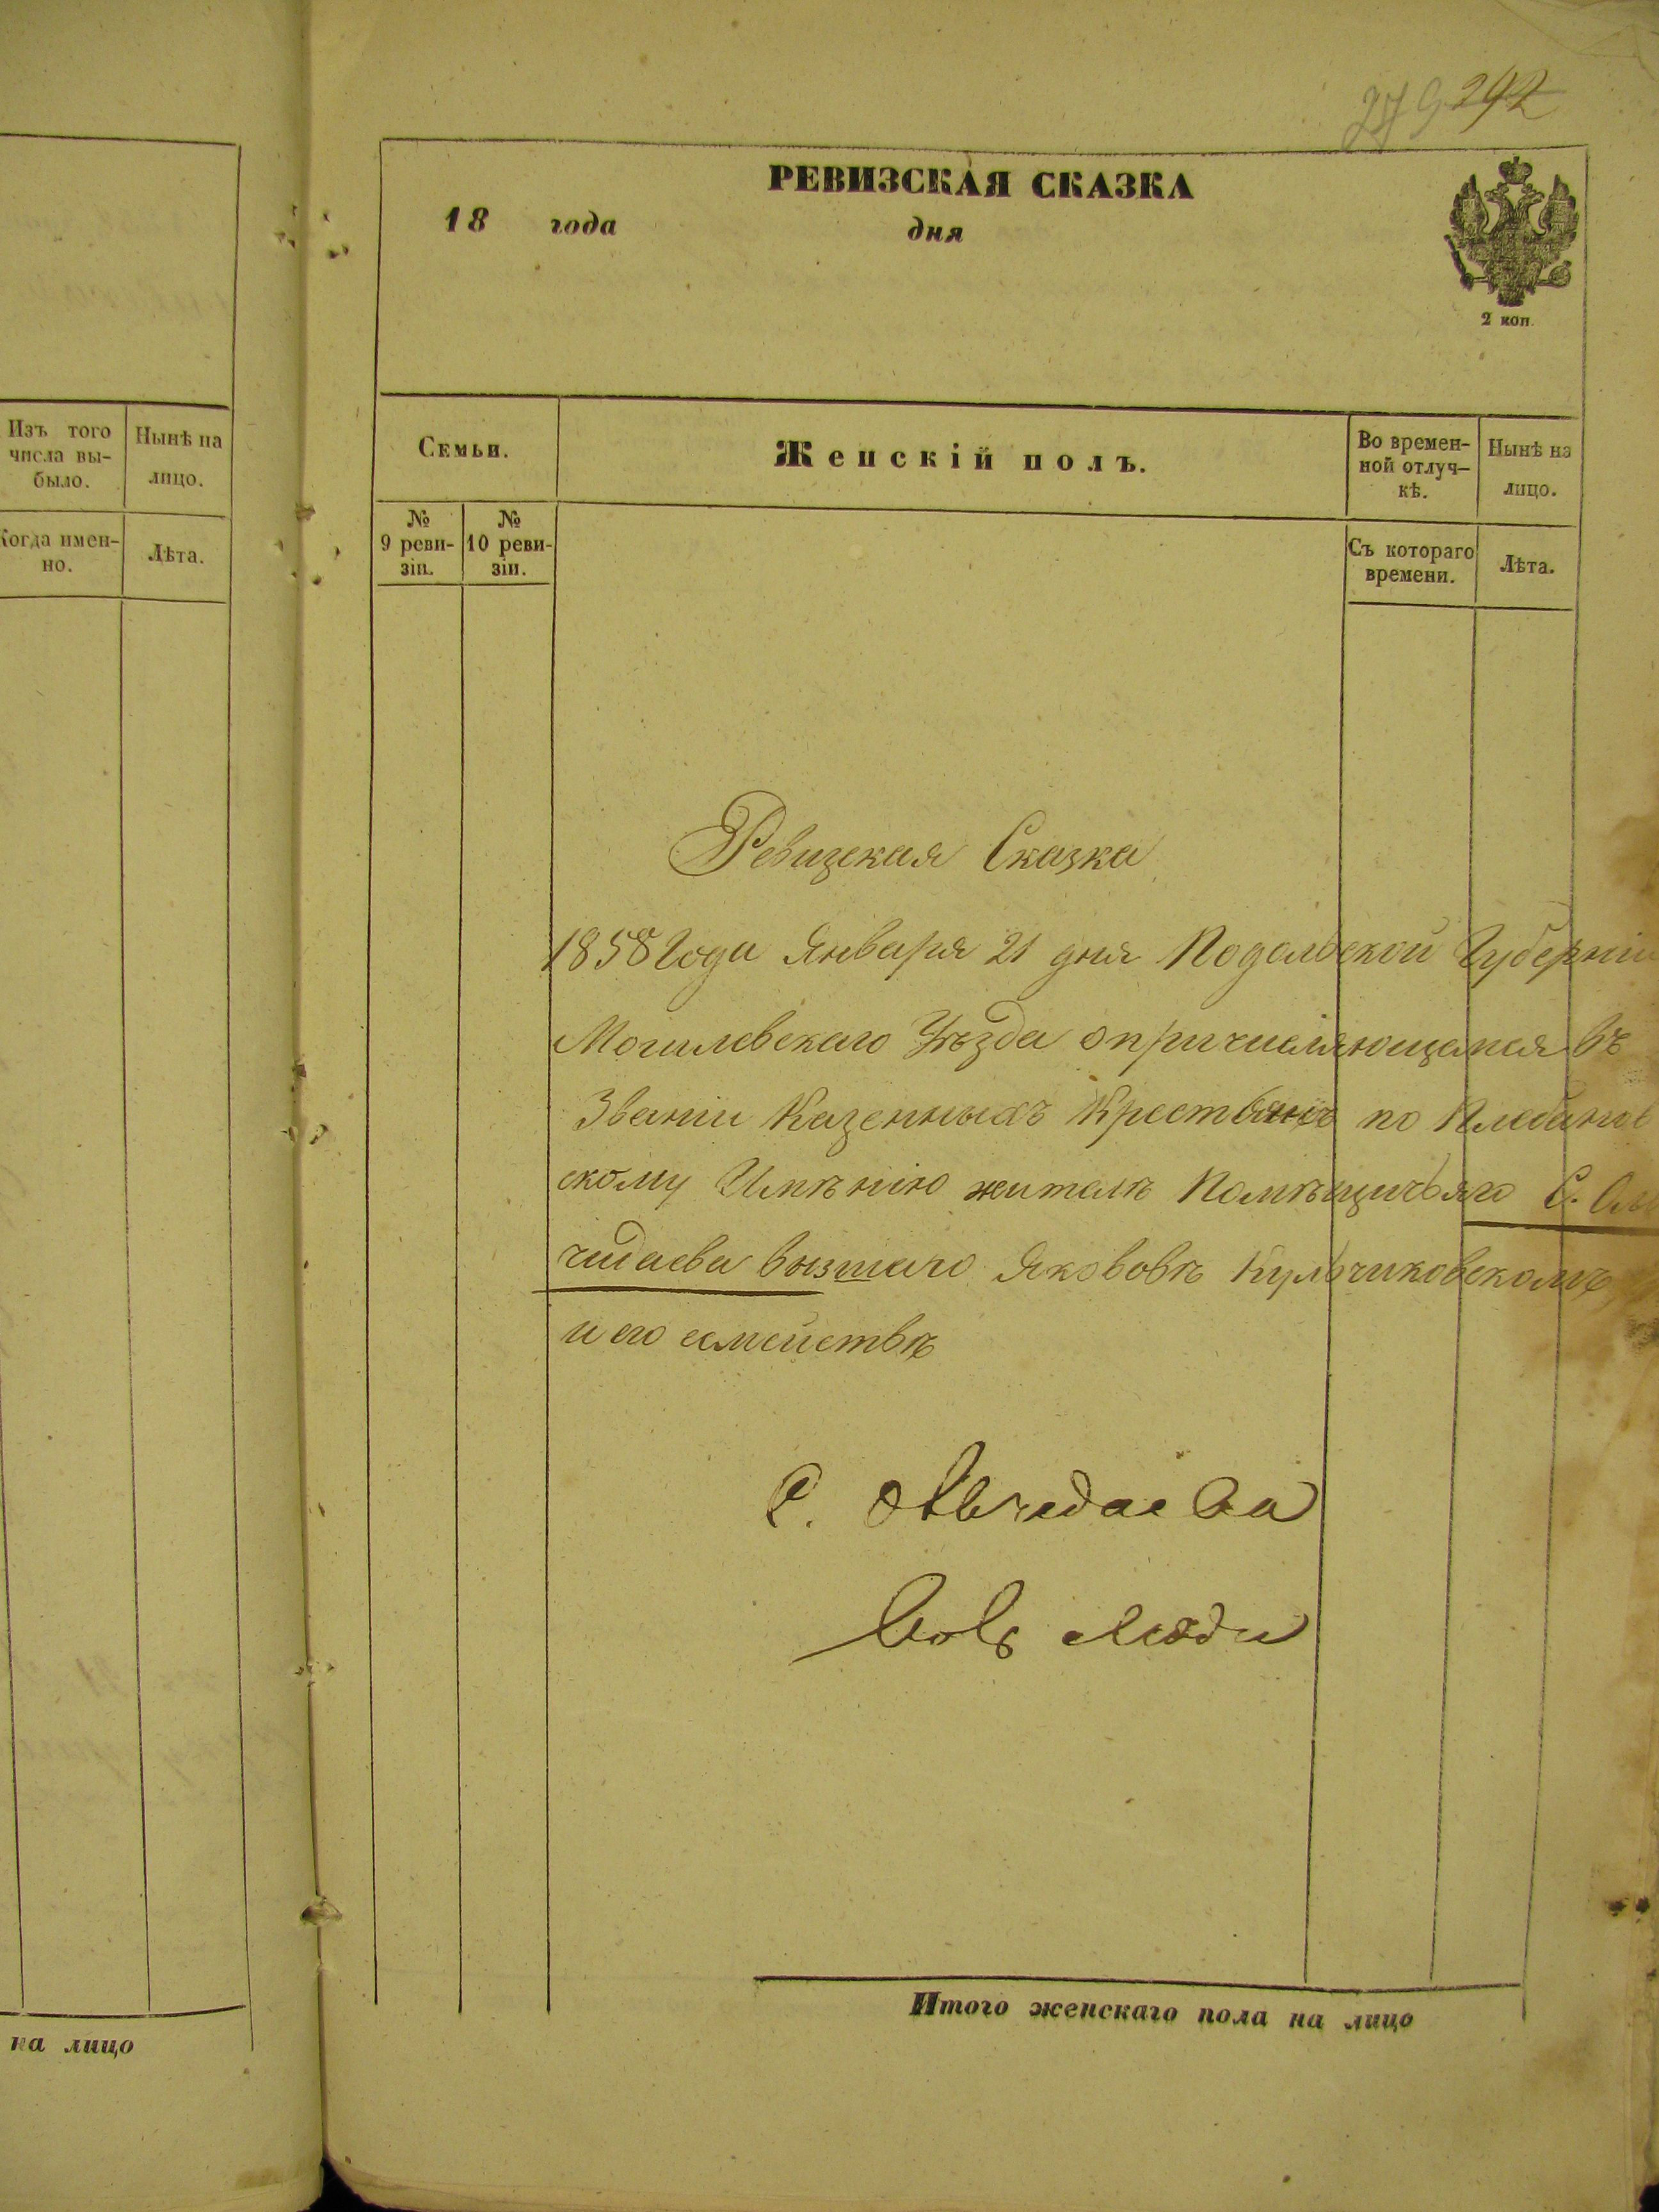 292
РЕВИЗСКАЯ СКАЗКА
18 года дня
2 коп.
Изъ того числа вы-
было.
Нынѣ на
лицо.
Когда имен-
но.
Лѣта.
на лицо
Семьи.
Женскій полъ.
Во времен-
ной отлуч-
кѣ.
Нынѣ на
лицо.
№
9 реви-
зіи.
№
10 реви-
зіи.
Съ котораго
времени.
Лѣта.
Ревизская Сказка
1858 Года Января 21 дня Подольской Губерніи
Могилевскаго Уѣзда о причисляющемся въ
Званіи Казенныхъ Крестьянъ по
скому Имѣнію жителѣ Помѣщичьяго С.
чидаева Яковѣ Кульчиковскомъ
и его семействѣ
С. Авчедаева
люди
Итого женскаго пола на лицо